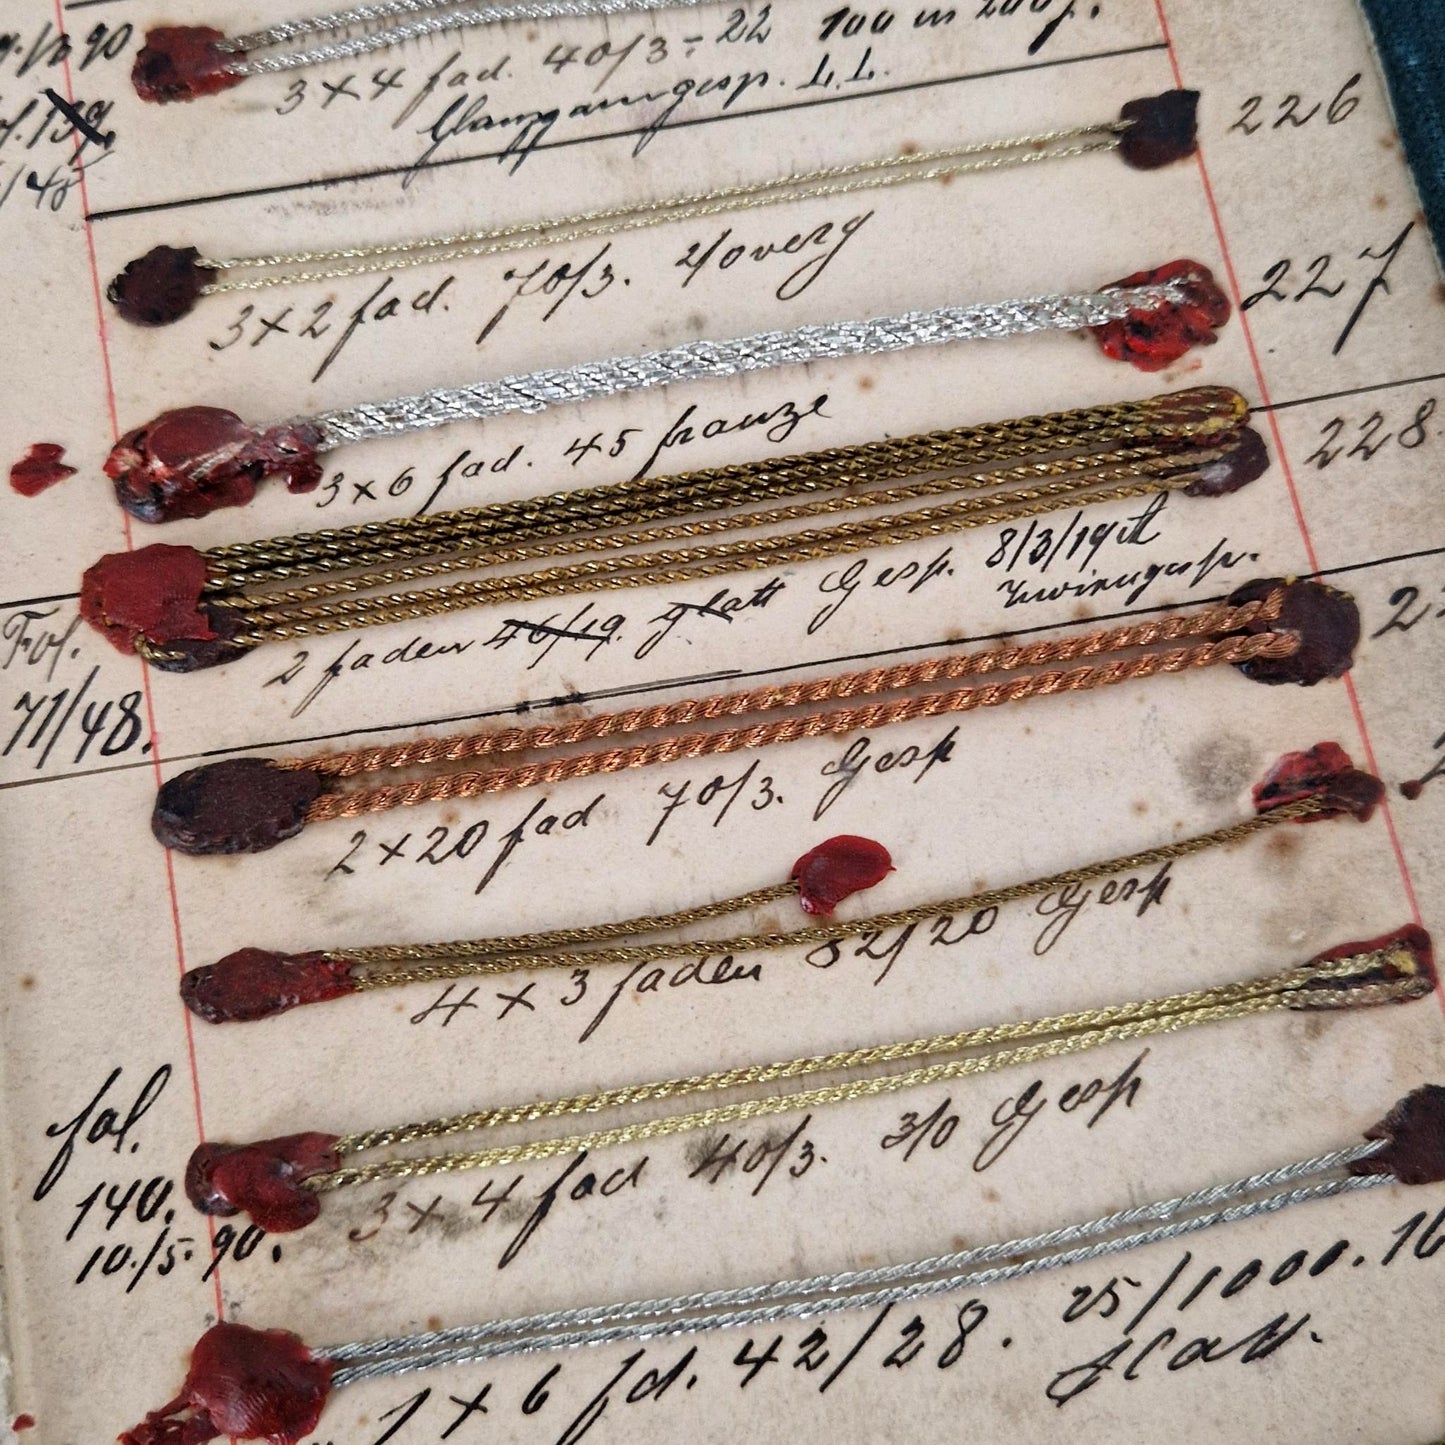 90
3 x 4 fad. 40/3 ÷ 22 100 m 200f.
gesp. L.L.
f. 139.
/48
226
3 x 2 fad. 70/3. 2/0 verg
227
3 x 6 fad. 45 franze
228.
2 faden 46/19. glatt Gesp. 8/3/19
Zwirngesp.
Fol.
71/48.
2
2 x 20 fad 70/3. Gesp
4 x 3 faden 32/20 Gesp
fol.
140.
10./5. 90.
3 x 4 fad 40/3. 3/0 Gesp
1 x 6 fd. 42/28. 25/1000. 16
Glatt.